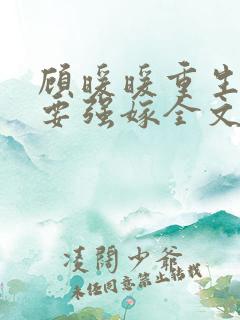 顾暖暖重生
要强嫁全文
凌阔少爷
未经同意禁止转载